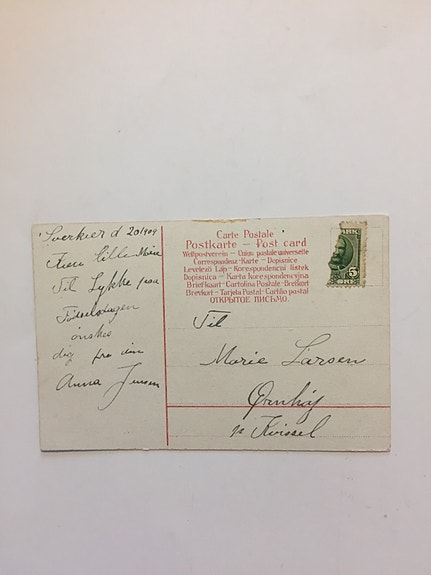 Sverkier d 20/1909
Kære lille Marie
Til Lykke paa
Fødselsdagen
ønskes
dig fra din
Anna Jensen
Carte Postale
Postkarte – Post card
Weltpostverein – Union postale universelle
Correspondenz-Karte – Dopisnice
Levelező Láp – Korespondencni listek
Dopisnica – Karta Korespondencyjna
Briefkaart – Cartolina Postale – Brefkort
Brevkort – Tarjeta Postal – Cartão postal
ОТКРЫТОЕ ПИСЬМО.
5
ØRE
Til
Marie Larsen
Ørnhøj
pr Kvissel